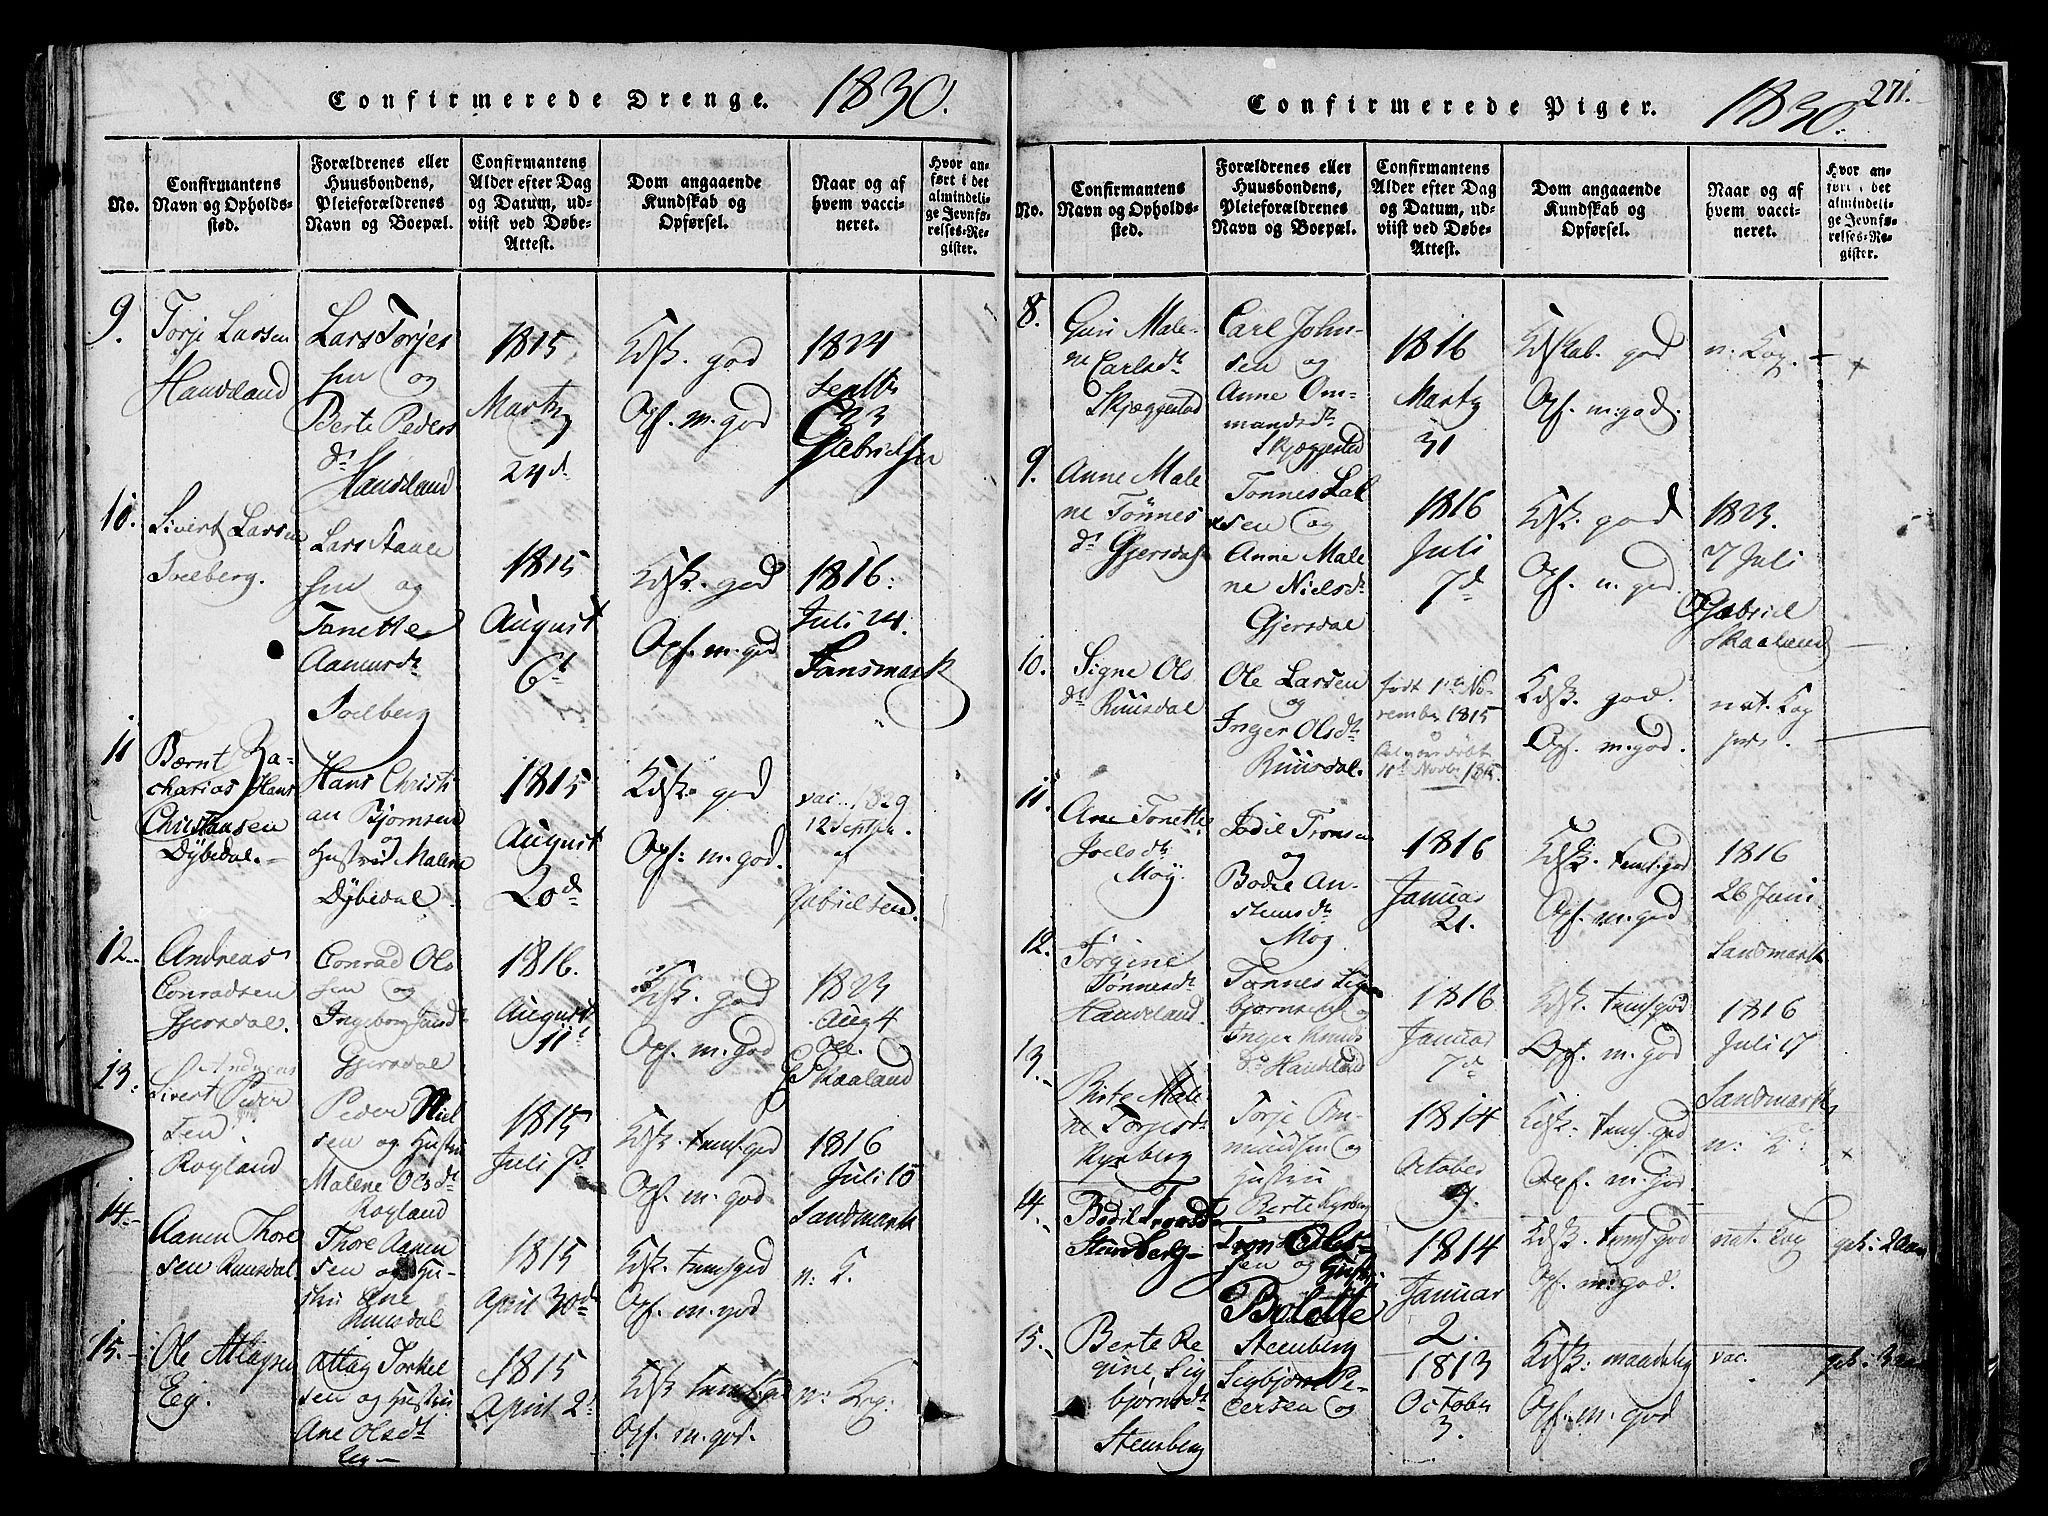 Confirmerede Drenge. 1830.
No.
Confirmantens
Navn og Opholds-
sted.
Forældrenes eller
Huusbondens,
Pleieforældrenes
Navn og Boepæl.
Confirmantens
Alder efter Dag
og Datum, ud-
viist ved Døbe-
Attest.
Dom angaaende
Kundskab og
Opførsel.
Naar og af
hvem vacci-
neret.
Hvor an-
ført i det
almindeli-
ge Jevnfø-
relses-Re-
gister.
9.
Torje Larsen
Hauvland
Lars Torjes
sen og
Berte Peders
dr
Hauvland
1815
Marty
24d.
Kdsk. god
Opf. m. god
1824
Septbr
23
Gabrielsen
10.
Sivert Larsen
Soelberg.
Lars Staale
sen og
Tanette
Aamundr
Soelberg
1815
August
6t
Kdsk. god
Opf. m. god
1816.
Juli 24.
Sansmark
11
Bærnt Za-
charias Hans
Christiansen
Dybedal.
Hans Christi
an Bjornsen
og
Hustru Malene
Dybedal
1815
August
20d
Kdsk. god
Opf. m. god.
vac. 1829
12 Septbr.
af
Gabrielsen
12.
Andreas
Conradsen
Gjersdal.
Conrad Ols
sen og
Ingeborg
Gjersdal
1816.
August
11t
Kdsk. god
Opf. m. god
1823
Aug 4
G Skaaland
13.
Andreas
Sivert Peder
sen
Røyland
Peder Niel
sen og Hustru
Malene Olsdr
Røyland
1815
Juli 7d
Kdsk. temf. god
Opf. m. god
1816
Juli 15
Sandmark
14.
Aanen Thore
sen Ruusdal
Thore Aanen
sen og Hu-
stru Ane
Ruusdal
1815
April 30d
Kdsk. temf god
Opf. m. god
n. K.
15.
Ole Atlagsen
Eig.
Atlag Torkel
sen og Hustru
Ane Olsdr
Eig
1815
April 2d
Kdsk temf. god
Opf. m. god.
n. Kop.
Confirmerede Piger. 1830. 271.
No.
Confirmantens
Navn og Opholds-
sted.
Forældrenes eller
Huusbondens,
Pleieforældrenes
Navn og Boepæl.
Confirmantens
Alder efter Dag
og Datum, ud-
viist ved Døbe-
Attest.
Dom angaaende
Kundskab og
Opførsel.
Naar og af
hvem vacci-
neret.
Hvor an-
ført i det
almindeli-
ge Jevnfø-
relses-Re-
gister.
8.
Guri Male-
ne Carlsdr
Skjæggestad
Carl John-
sen og
Anne Om-
mundsdr
Skjæggestad
1816
Marty
31
Kdskab. god
Opf. m. god.
n. Kop.
9.
Anne Male
ne Tønnes
dr Gjersdal
Tonnes Lal
sen og
Anne Male
ne Nielsdr
Gjersdal
1816
Juli
7d
Kdsk. god
Opf. m. god
1823.
7 Juli
Gabriel
Skaaland
10.
Signe Ols
dr Ruusdal
Ole Larsen
og
Inger Olsdr
Ruusdal.
født 1te No-
vember 1815
Kdsk. god.
Opf. m. god.
nat. Kop
11.
Ane Tonette
Joelsdr
Moy.
Jodil Tronsen
og
Bodil An-
stensdr
Moy
1816
Januar
21.
Kdsk. temf. god
Opf. m. god
1816
26 Juni
Sandmark
12.
Jørgine
Tønnesdr
Handeland.
Tønnes Sig
bjørnsen og
Inger Knus
dr Handeland
1816
Januar
7de
Kdsk. temf god
Opf. m. god
1816
Juli 17
Sandmark
13.
Birte Male-
ne Torjesdr
Kyrberg
Torje Om-
mundsen og
Hustru
Berte Kyrberg
1814
October
9.
Kdsk. temf. god
Opf. m. god.
n. K.
14.
Bodil Tronsdr
Steensberg
Tron Oles-
sen og Hustr.
Bolette
Steenberg
1814
Januar
2.
Kdsk. temf god
Opf. m. god.
nat. Kop
15.
Berte Re
gine Sig
bjørnsdr
Steensberg
Segbjørn Pe-
dersen og
1813
October
3.
Kdsk. maadelig
Opf. m. god
vac.